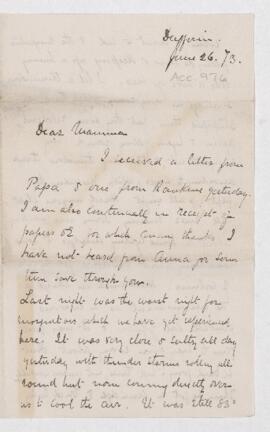 Dufferin.
June 26. /73.
ACC 976
Dear Mamma
I received a letter from
Papa & one from Rankine yesterday.
I am also continually in receipt of
papers &c for which many thanks I
have not heard from Anna for some
time save through you.
Last night was the worst night for
mosquitoes which we have yet experienced
here. It was very close & sultry all day
yesterday with thunder storms rolling all
round but none coming directly over
us to cool the air. It was still 83°